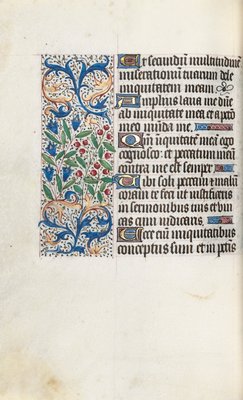 Et secundum multitudinem
miserationum tuarum dele
iniquitatem meam.
Amplius laua me dñe
ab iniquitate mea et a pctō
meo munda me.
Qm̄ iniquitatē meā ego
cognosco: et peccatum meū
contra me est semper
Tibi soli peccaui et malū
coram te feci ut iustificeris
in sermonibus tuis et vin
cas cum iudicaris.
Ecce enim iniquitatibus
conceptus sum et in pctīs